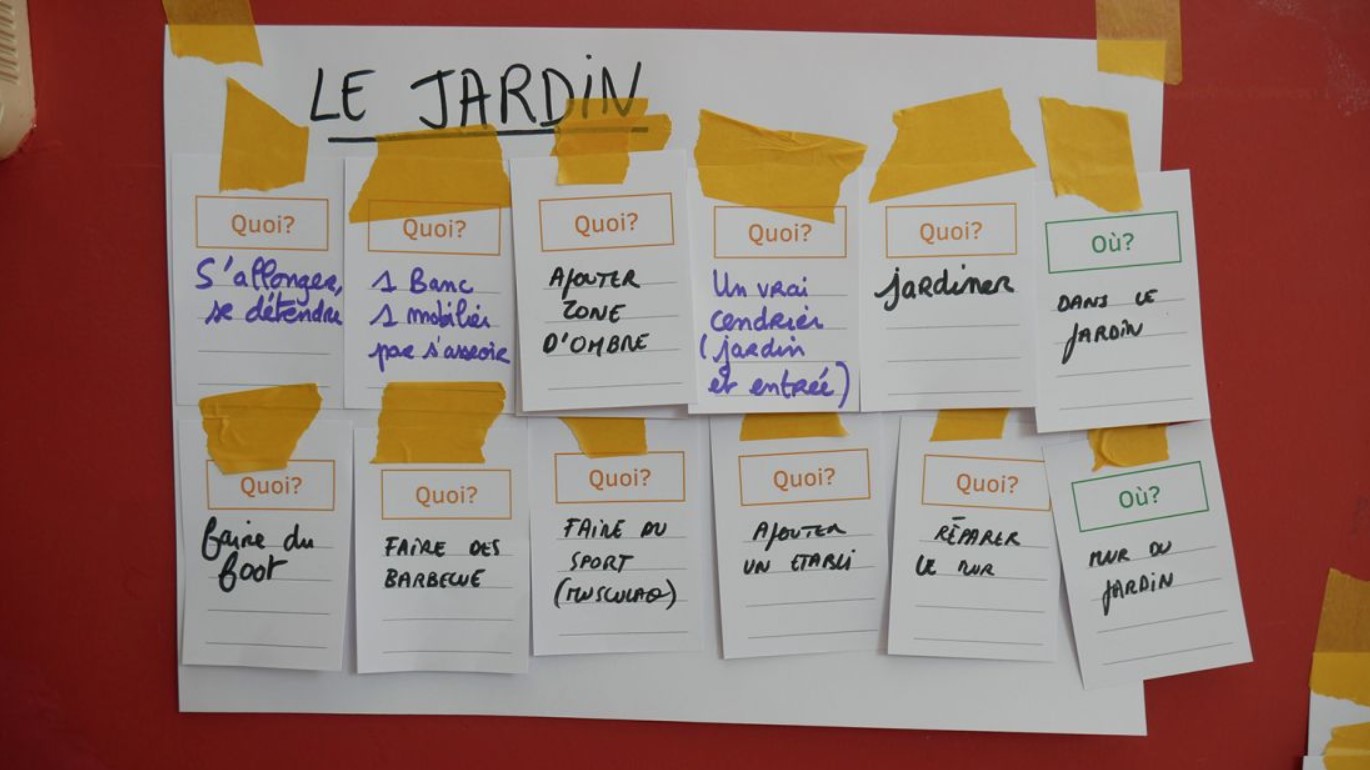 LE JARDIN
Quoi?
S'allonger,
se détendre
Quoi?
1 Banc
1 mobilier
par s'asseoir
Quoi?
AJOUTER
ZONE
D'OMBRE
Quoi?
Un vrai
cendrier
(jardin
et entrée)
Quoi?
jardiner
Où?
DANS LE
JARDIN
Quoi?
faire du
foot
Quoi?
FAIRE DES
BARBECUE
Quoi?
FAIRE DU
SPORT
Quoi?
AJOUTER
UN ETABLI
Quoi?
RÉPARER
LE MUR
Où?
MUR DU
JARDIN